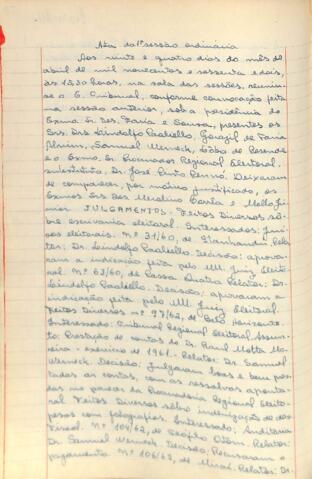 Ata da 1ª sessão ordinária
Aos vinte e quatro dias do mês de
abril de mil novecentos e sessenta e dois,
às 13,30 horas, na sala das sessões, reuniu-
se o E. Tribunal, conforme convocação feita
na sessão anterior, sob a presidência do
Exmo. Sr. Des. Faria e Sousa, presentes os
Srs. Drs. Lindolfo Paoliello, Gorazil de Faria
Alvim, Samuel Werneck, Lobão de Resende
e o Exmo. Sr. Procurador Regional Eleitoral,
substituto, Dr. José Pinto Renó. Deixaram
de comparecer, por motivo justificado, os
Exmos. Srs. Des. Merolino Corrêa e Mello Jú-
nior. JULGAMENTOS - Feitos Diversos sô-
bre escrivania eleitoral. Interessados: Juí-
zos eleitorais. nº 31/60, de Itanhandu. Rela-
tor: Dr. Lindolfo Paoliello. Decisão: aprova-
ram a indicação feita pelo MM. Juiz Eleito-
ral. nº 63/60, de Passa Quatro. Relator: Dr.
Lindolfo Paoliello. Decisão: aprovaram a
indicação feita pelo MM. Juiz Eleitoral.
Feitos Diversos nº 97/62, de Belo Horizonte.
Interessado: Tribunal Regional Eleitoral. Assun-
to: Prestação de contas do Dr. Raul Motta Mo-
reira - exercício de 1961. Relator: Dr. Samuel
Werneck. Decisão: Julgaram boas e bem pres-
tadas as contas, com as ressalvas aponta-
das no parecer da Procuradoria Regional Eleito-
ral. Feitos Diversos sôbre indenização de des-
pesas com fotografias. Interessado: Auditoria
Fiscal. Nº 104/62, de Teófilo Otoni. Relator:
Dr. Samuel Werneck. Decisão: Recusaram o
pagamento. Nº 106/62, de Miraí. Relator: Dr.